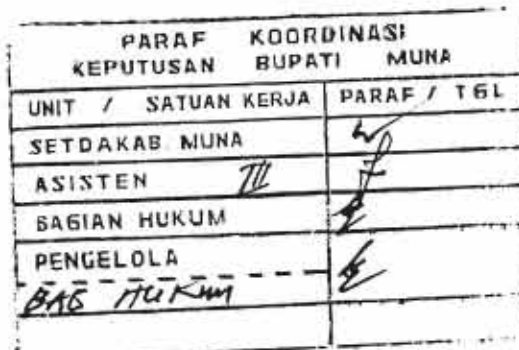 PARAF KOORDINASI
KEPUTUSAN BUPATI MUNA
UNIT / SATUAN KERJA PARAF / TGL
SETDAKAB MUNA
ASISTEN III
BAGIAN HUKUM
PENGELOLA
BAG HUKUM